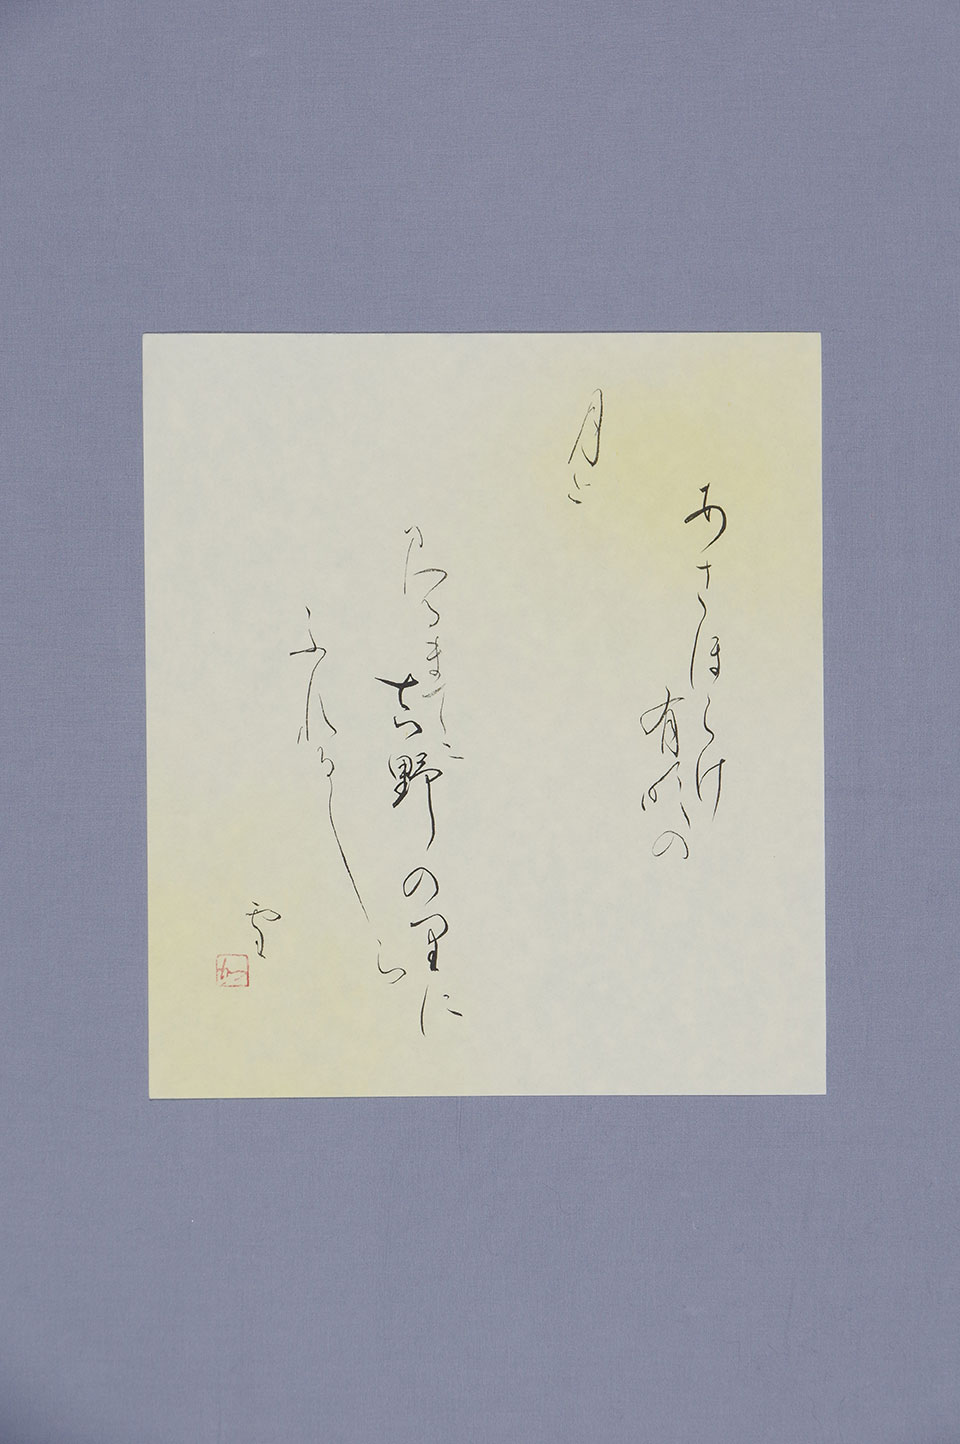 あさほらけ
有明の
月と
見るまてに
吉野の里に
ふれるしら
雪